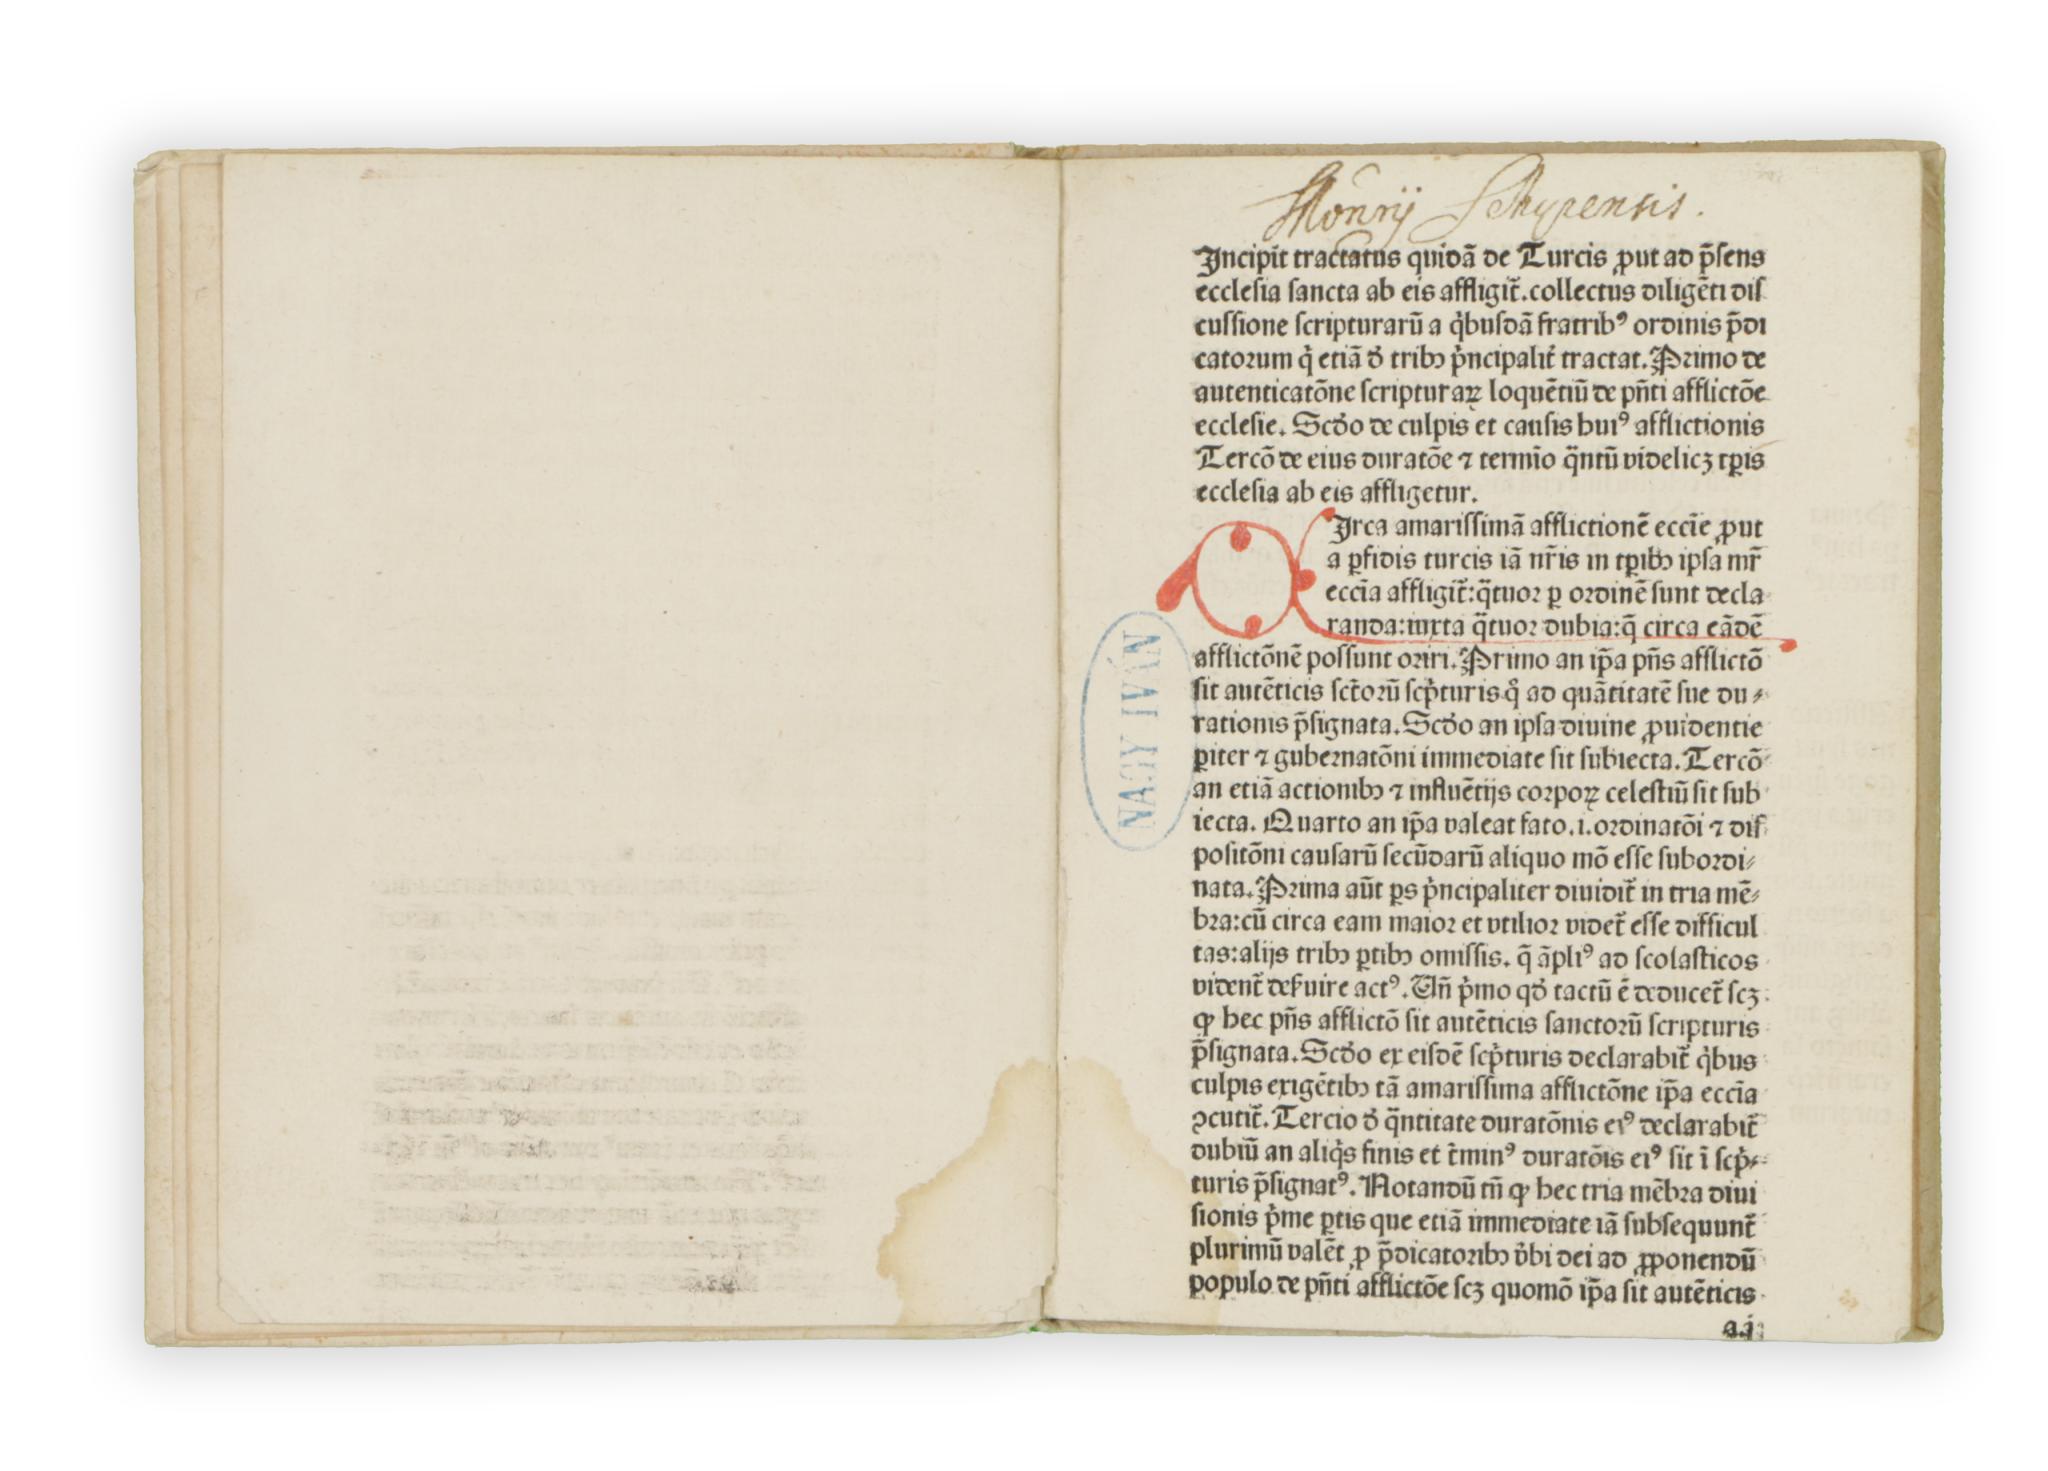 Monrij Schyrensis.
Incipit tractatus quidã de Turcis ꝓut ad p̃sens
ecclesia sancta ab eis affligit̃.collectus diligẽti dis
cussione scripturarũ a q̇busdã fratribꝰ ordinis p̃di
catorum q̇ etiã ꝺ̇ tribꝫ ṗncipalit̃ tractat. Primo de
autenticatõne scripturaꝝ loquẽtiũ de pñti afflictõe
ecclesie. Scꝺo de culpis et causis huiꝰ afflictionis
Tercõ de eius duratõe ⁊ termĩo q̈ntũ videlicꝫ tꝑis
ecclesia ab eis affligetur.
Irca amarissimã afflictionẽ eccĩe ꝓut
a ꝑfidis turcis iã nr̃is in tꝑibꝫ ipsa mr̃
eccĩa affligit̃:q̈tuor ꝑ ordinẽ sunt decla
randa:iuxta q̈tuor dubia:q̃ circa eãdẽ
afflictõnẽ possunt oriri. Primo an ip̃a pñs afflictõ
sit autẽticis sctorũ scṗturis qͦ ad quãtitatẽ sue du⸗
rationis p̃signata. Scꝺo an ipsa divine ꝓuidentie
ꝑiter ⁊ gubernatõni immediate sit subiecta. Tercõ
an etiã actionibꝫ ⁊ influẽtijs corpoꝝ celestiũ sit sub
iecta. Quarto an ip̃a valeat fato.i.ordinatõi ⁊ dis
positõni causarũ secũdarũ aliquo mõ esse subordi⸗
nata. Prima aũt ꝑs ṗncipaliter diuidit̃ in tria mẽ⸗
bra:cũ circa eam maior et vtilior videt̃ esse difficul
tas:alijs tribꝫ ꝑtibꝫ omissis. q̃ ãpliꝰ ad scolasticos
vident̃ deẜuire actꝰ. Vñ ṗmo qꝺ tactũ ẽ deducet̃ scꝫ
ꝙ hec pñs afflictõ sit autẽticis sanctorũ scripturis
p̃signata. Scꝺo ex eisdẽ scṗturis declarabit̃ q̇bus
culpis exigẽtibꝫ tã amarissima afflictõne ip̃a eccĩa
ꝯcutit̃. Tercio ꝺ̇ q̈ntitate duratõnis eiꝰ declarabit̃
dubiũ an aliq̇s finis et t̃minꝰ duratõis eiꝰ sit ĩ scṗ⸗
turis p̃signatꝰ. Notandũ tñ ꝙ hec tria mẽbra diui
sionis ṗme ꝑtis que etiã immediate iã subsequunt̃
plurimũ valẽt ꝓ p̃dicatoribꝫ v̇bi dei ad ꝓponendũ
populo de pñti afflictõe scꝫ quomõ ip̃a sit autẽticis
a.j
NAGY IVÁN